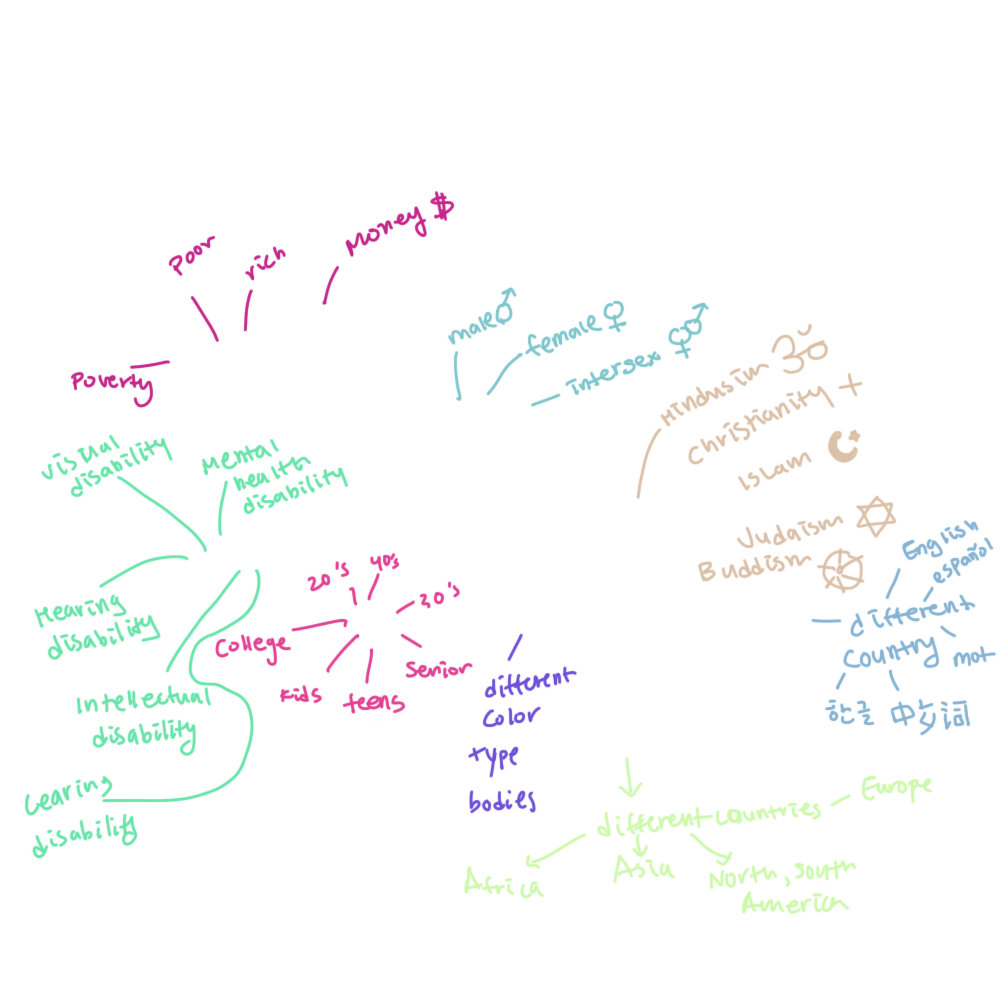 Poor
rich
Money $
Poverty
male ♂
female ♀
intersex
Hindusim ॐ
Christianity +
Islam ☪
Judaism ✡
Buddism
visual
disability
Mental
health
disability
Hearing
disability
Intellectual
disability
Learing
disability
20's
40's
30's
College
Kids
teens
Senior
different
Color
type
bodies
English
español
different
Country
mot
한글
中文词
different countries
Europe
Africa
Asia
North, south
America